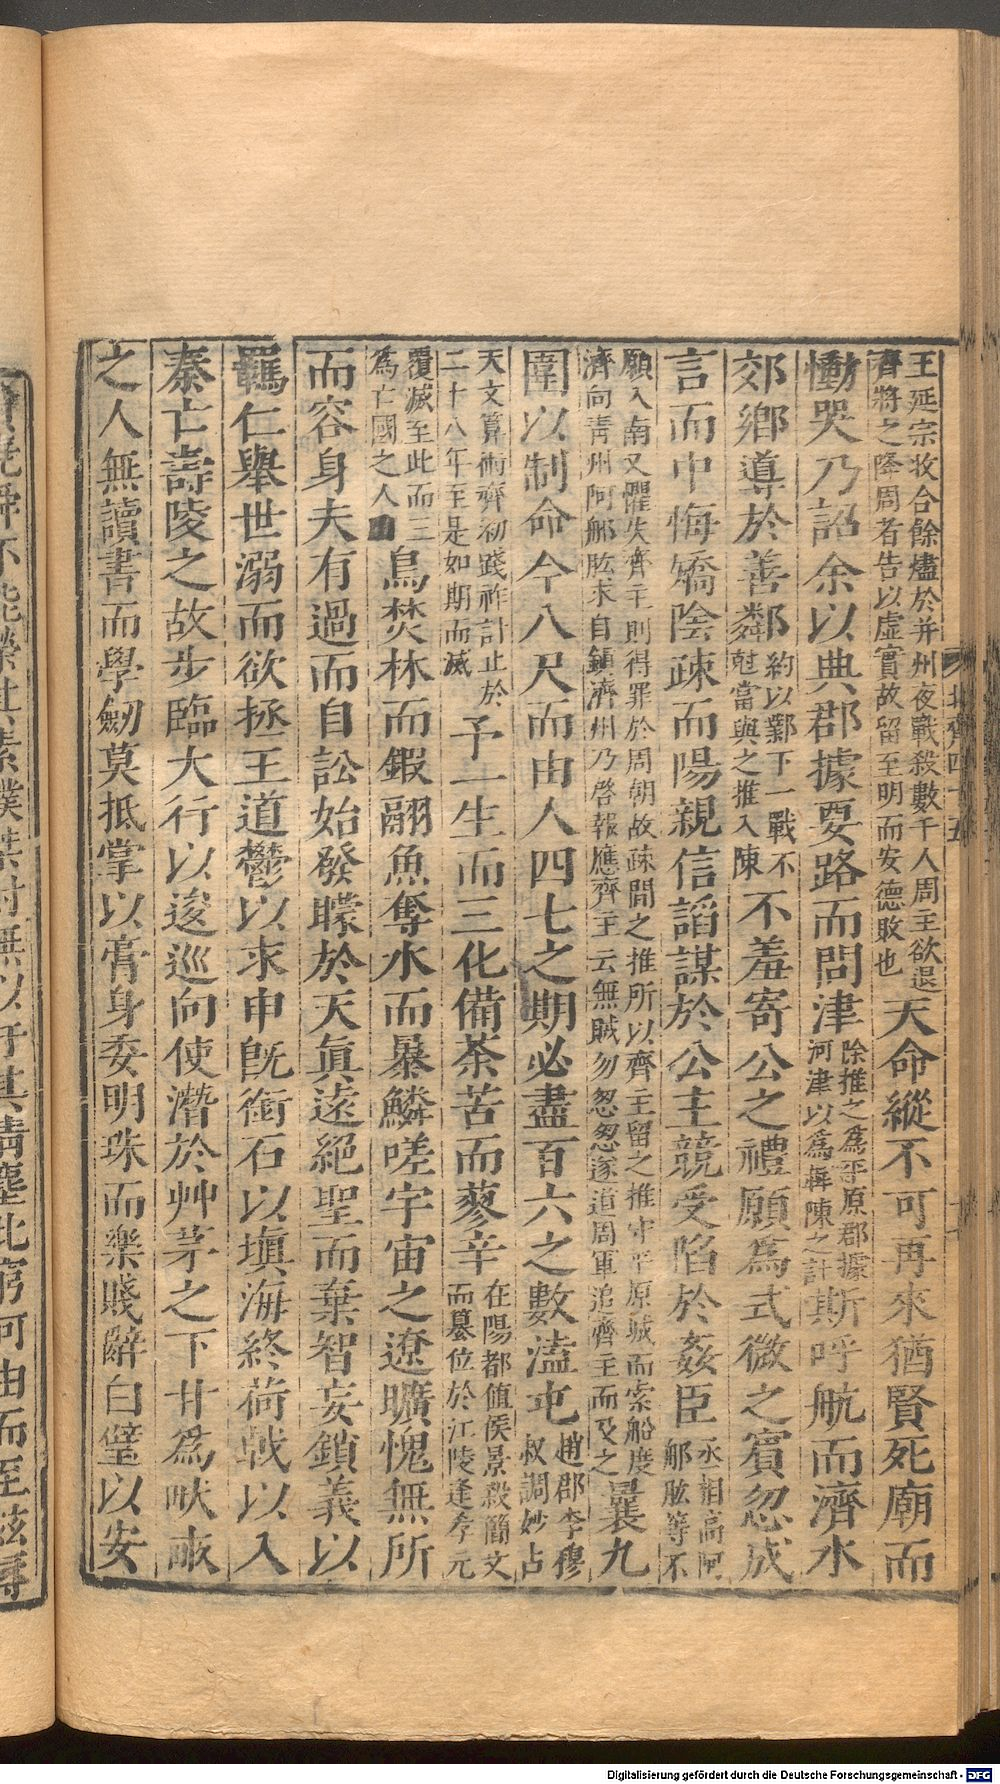 王延宗收合餘燼於并州夜戰殺數千人周主欲退
齊將之降周者告以虛實故留至明而安德敗也
天命縱不可再來猶賢死廟而
慟哭乃詔余以典郡據要路而問津
除推之為平原郡據
河津以為奔陳之計
斯呼航而濟水
郊鄉導於善鄰
約以鄴下一戰不
尅當與之推入陳
不羞寄公之禮願為式微之賓忽成
言而中悔矯陰疎而陽親信謟謀於公主競受陷於姦臣
丞相高阿
那肱等不
願入南又懼失齊主則得罪於周朝故疎間之推所以齊主留之推守平原城而索船度
濟向青州阿那肱求自鎮濟州乃啓報應齊主云無賊勿怱怱遂道周軍追齊主而及之
曩九
圍以制命今八尺而由人四七之期必盡百六之數溘屯
趙郡李穆
叔調妙占
天文算術齊初踐祚計止於
二十八年至是如期而滅
予一生而三化備荼苦而蓼辛
在陽都值侯景殺簡文
而墓位於江陵逢孝元
覆滅至此而三
為亡國之人
鳥焚林而鎩翮魚奪水而暴鱗嗟宇宙之遼曠愧無所
而容身夫有過而自訟始發矇於天真遠絕聖而棄智妄鎖義以
羈仁舉世溺而欲拯王道鬱以求申既銜石以塡海終荷戟以入
秦亡壽陵之故步臨大行以逡巡向使潛於艸茅之下甘為畎畝
之人無讀書而學劒莫抵掌以膏身委明珠而樂賤辭白璧以安
堯舜不能榮其素樸桀紂無以汙其清塵此窮何由而至茲辱
北齊四十五
Digitalisierung gefördert durch die Deutsche Forschungsgemeinschaft - DFG